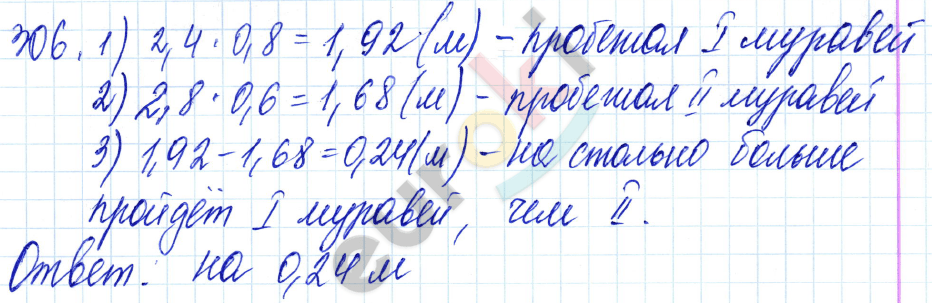 306. 1) 2,4 · 0,8 = 1,92 (м) – пробежал I муравей
2) 2,8 · 0,6 = 1,68 (м) – пробежал II муравей
3) 1,92 – 1,68 = 0,24 (м) – на столько больше
пройдёт I муравей, чем II.
Ответ: на 0,24 м
euroki